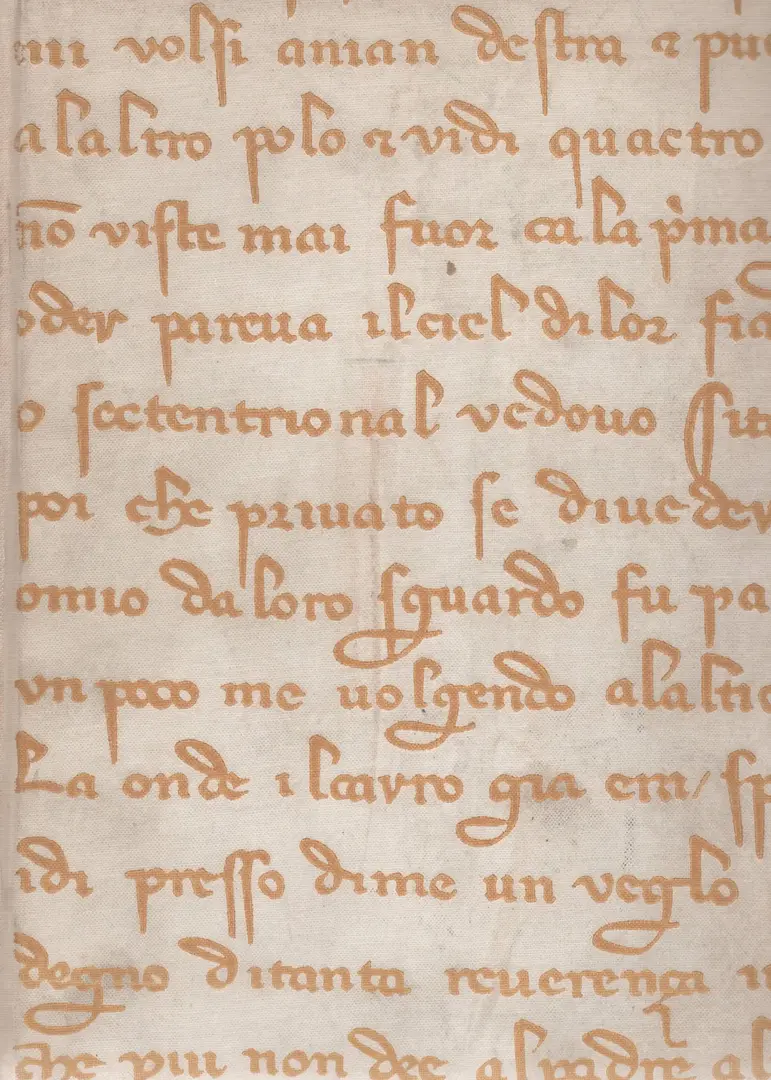 mi volsi aman destra ⁊ pue
alaltro polo ⁊ vidi quactro
nō viste mai fuor ca la p̀ma
oder pareua ilciel dilor fia
o sectentrional vedouo sito
poi che priuato se diueder
omio daloro sguardo fu pa
vn poco me uolgendo alaltro
La onde ilcarro gia era/ sp
idi presso dime un veglo
degno ditanta reuerença i
che piu non dee alpadre al